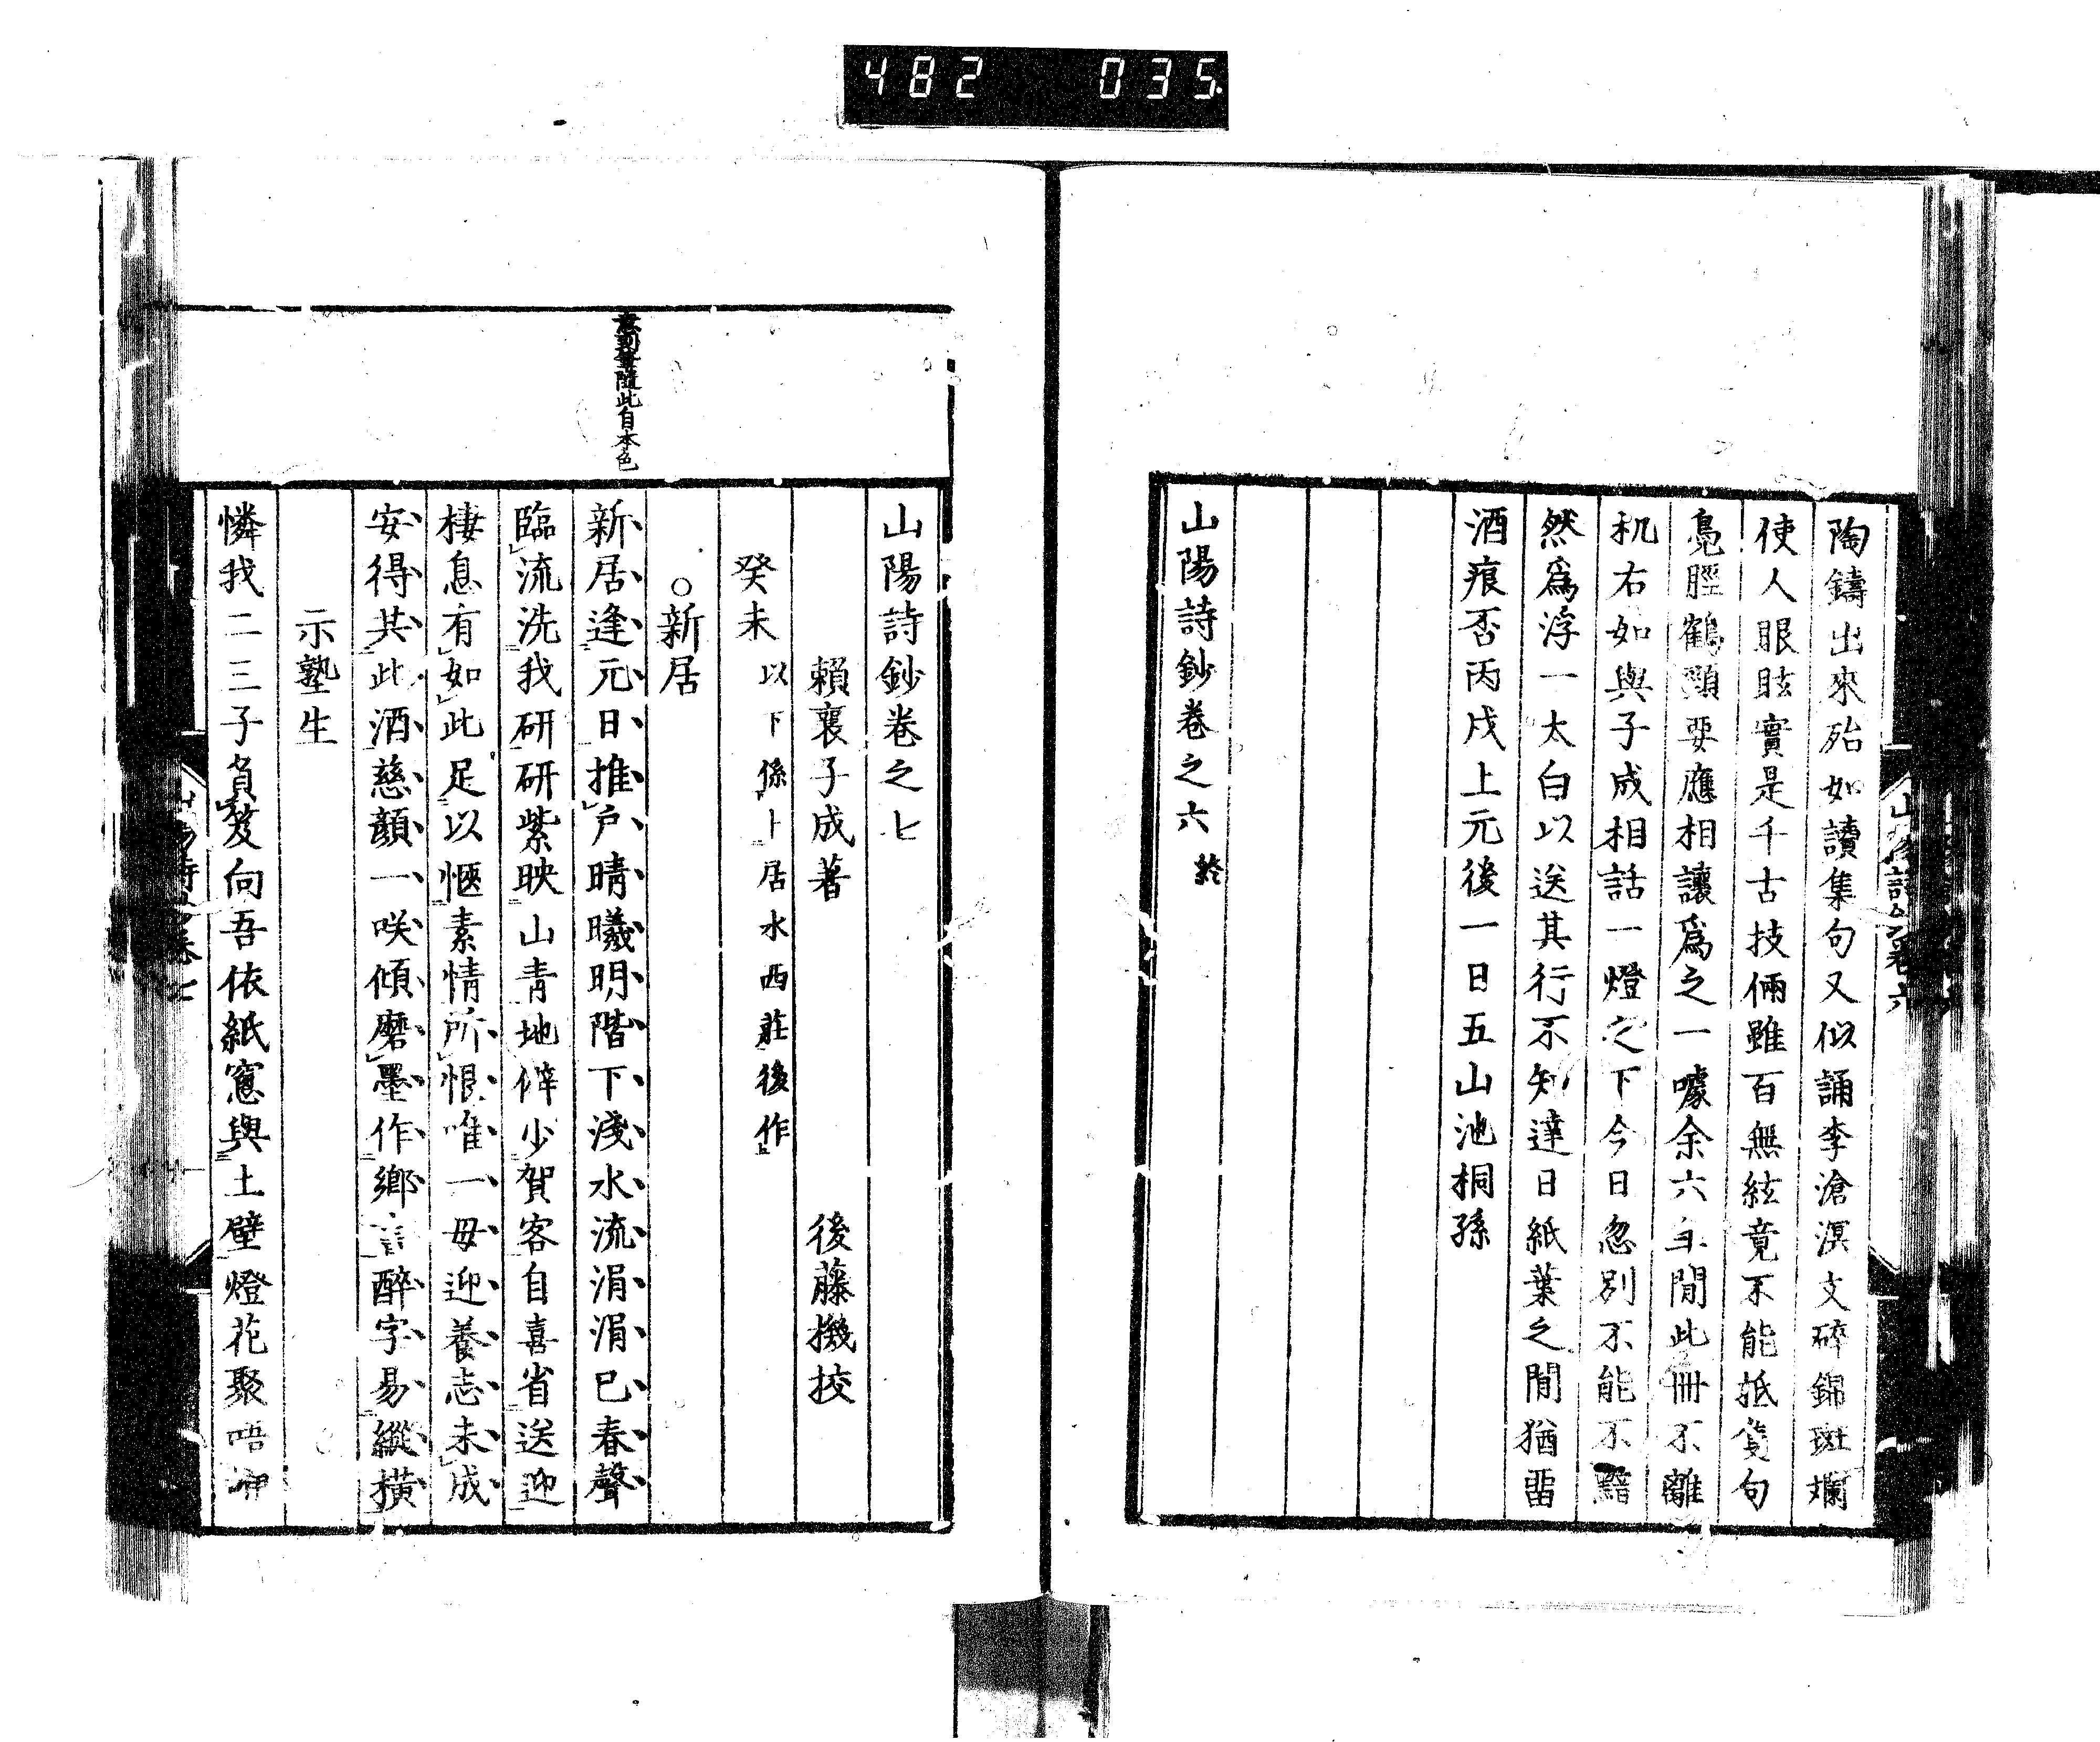 482 035
陶鑄出來殆如讀集句又似誦李滄溟文碎錦斑斕
使人眼眩實是千古技倆雖百無絃竟不能抵賞句
鳧脛鶴頸要應相讓爲之一噱余六年間此冊不離
机右如與子成相話一燈之下今日忽別不能不黯
然爲浮一太白以送其行不知達日紙葉之間猶畱
酒痕否丙戌上元後一日五山池桐孫
山陽詩鈔卷之六 終
山陽詩鈔卷之七
賴襄子成著 後藤機挍
癸未 以下係卜居水西莊後作
○新居
意到筆隨此自本色
新居逢元日推戶晴曦明階下淺水流涓涓已春聲
臨流洗我研研紫映山青地僻少賀客自喜省送迎
棲息有如此足以愜素情所恨唯一母迎養志未成
安得共此酒慈顏一咲傾磨墨作鄉言醉字易縱橫
示塾生
憐我二三子負笈向吾依紙窓與土壁燈花聚唔咿